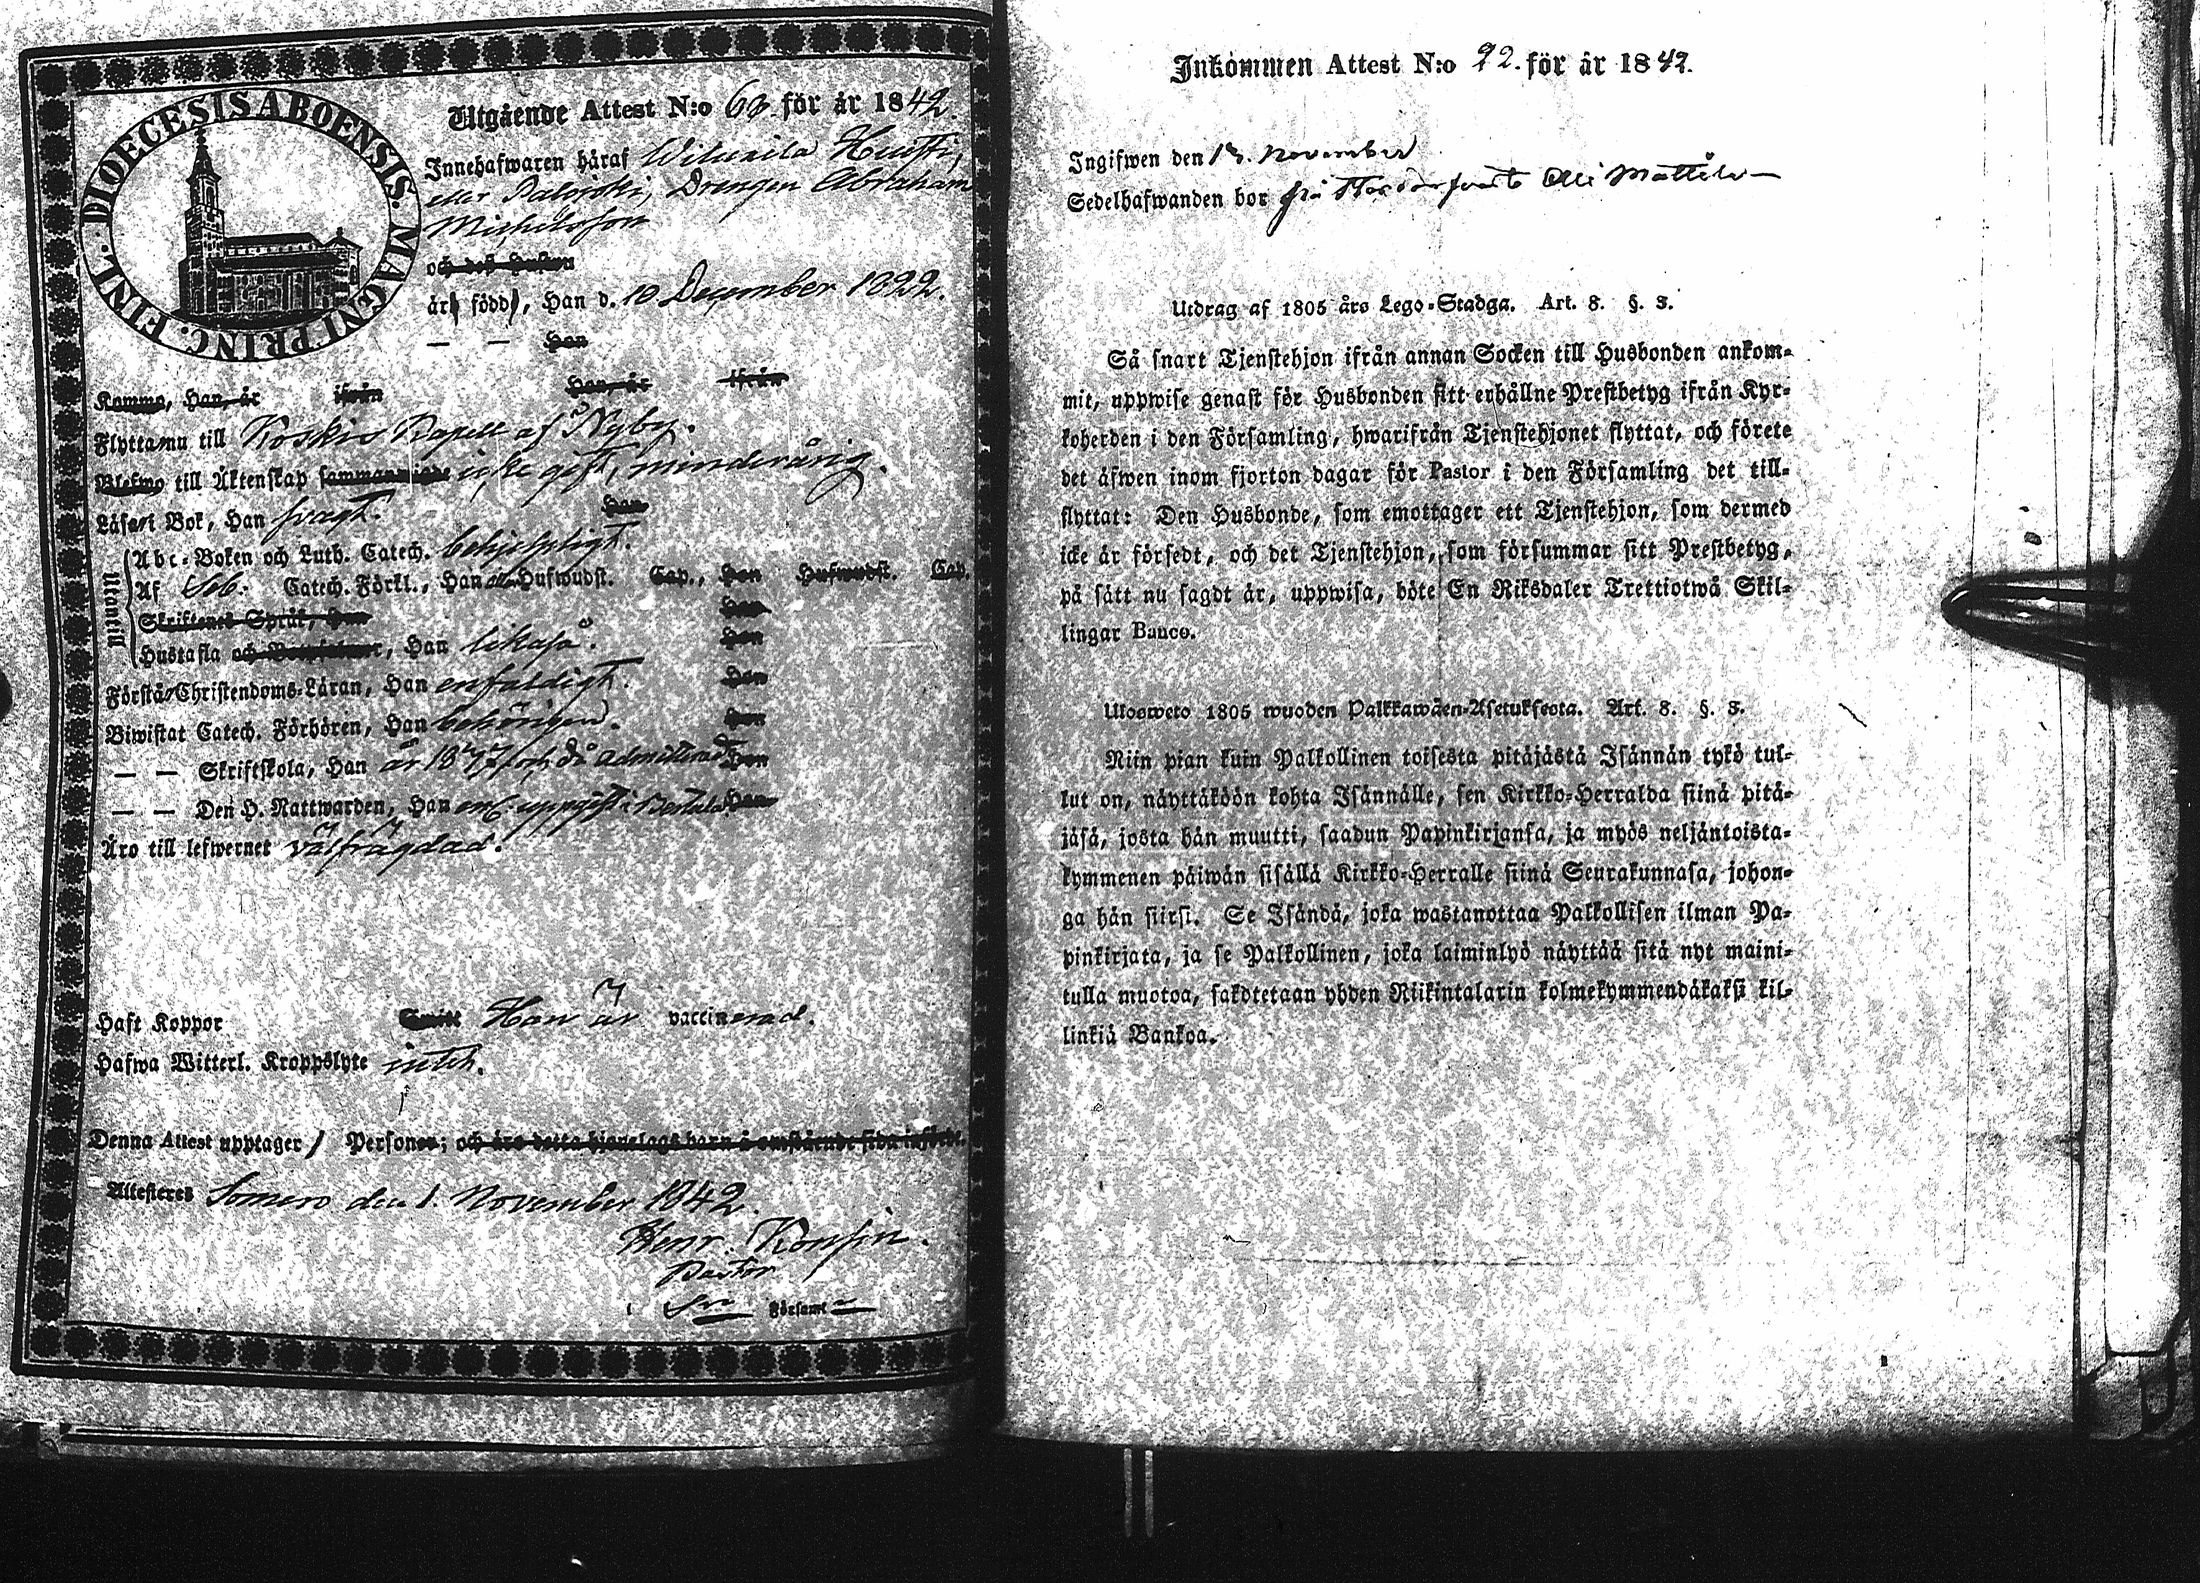 DIOECESIS ABOENSIS. MAGNI PRINC. FINL.
Utgående Attest N:o 63. för år 1842.
Innehafwaren häraf Huotti,
eller Drengen Abraham
Michelsson
och deß Hustru
är född, Han d. 10 December 1822.
— — Hon
Komme, Han, år ifrån Hon, år ifrån
Flyttar nu till Koskis Kapell af Nyby.
Blefwo till Äktenskap sammanwigde icke gift, minderårig.
Läser i Bok, Han svagt. Hon
Utantill
Abc-Boken och Luth. Catech. behjelpligt.
Af Seb. Catech. Förkl., Han alla Hufwudst. Cap., Hon Hufwudst. Cap.
Skriftenes Språk, Han Hon
Hustafla, Han likaså. Hon
Förstår Christendoms-Läran, Han enfaldigt. Hon
Biwistat Catech. Förhören, Han behörigen. Hon
— — Skriftskola, Han år och då admitterad Hon
— — Den H. Nattwarden, Han enl. uppgift i Hon
Äro till lefwernet välfrägdad.
Haft Koppor Samt Han är vaccinerad.
Hafwa Witterl. Kroppslyte intet.
Denna Attest upptager 1 Personer; och äro detta hjonelags barn å omstående sida införde.
Attesteres Somero den 1. November 1842.
Henr. Konsin.
Pastor
i Församl
Inkommen Attest N:o 22. för år 1842.
Ingifwen den 13. November
Sedelhafwanden bor Mattila
Utdrag af 1805 års Lego-Stadga. Art. 8. §. 3.
Så snart Tjenstehjon ifrån annan Socken till Husbonden ankom-
mit, uppwise genast för Husbonden sitt erhållne Prestbetyg ifrån Kyr-
koherden i den Församling, hwarifrån Tjenstehjonet flyttat, och förete
det äfwen inom fjorton dagar för Pastor i den Församling det till-
flyttat: Den Husbonde, som emottager ett Tjenstehjon, som dermed
icke är försedt, och det Tjenstehjon, som försummar sitt Prestbetyg,
på sätt nu sagdt är, uppwisa, böte En Riksdaler Trettiotwå Skil-
lingar Banco.
Ulosweto 1805 wuoden Palkkawäen-Asetuksesta. Art. 8. §. 3.
Niin pian kuin Palkollinen toisesta pitäjästä Isännän tykö tul-
lut on, näyttäköön kohta Isännälle, sen Kirkko-Herralda siinä pitä-
jäsä, josta hän muutti, saadun Papinkirjansa, ja myös neljäntoista-
kymmenen päiwän sisällä Kirkko-Herralle siinä Seurakunnasa, johon-
ga hän siirsi. Se Isändä, joka wastanottaa Palkollisen ilman Pa-
pinkirjata, ja se Palkollinen, joka laiminlyö näyttää sitä nyt maini-
tulla muotoa, sakotetaan yhden Riikintalarin kolmekymmendäkaksi kil-
linkiä Bankoa.